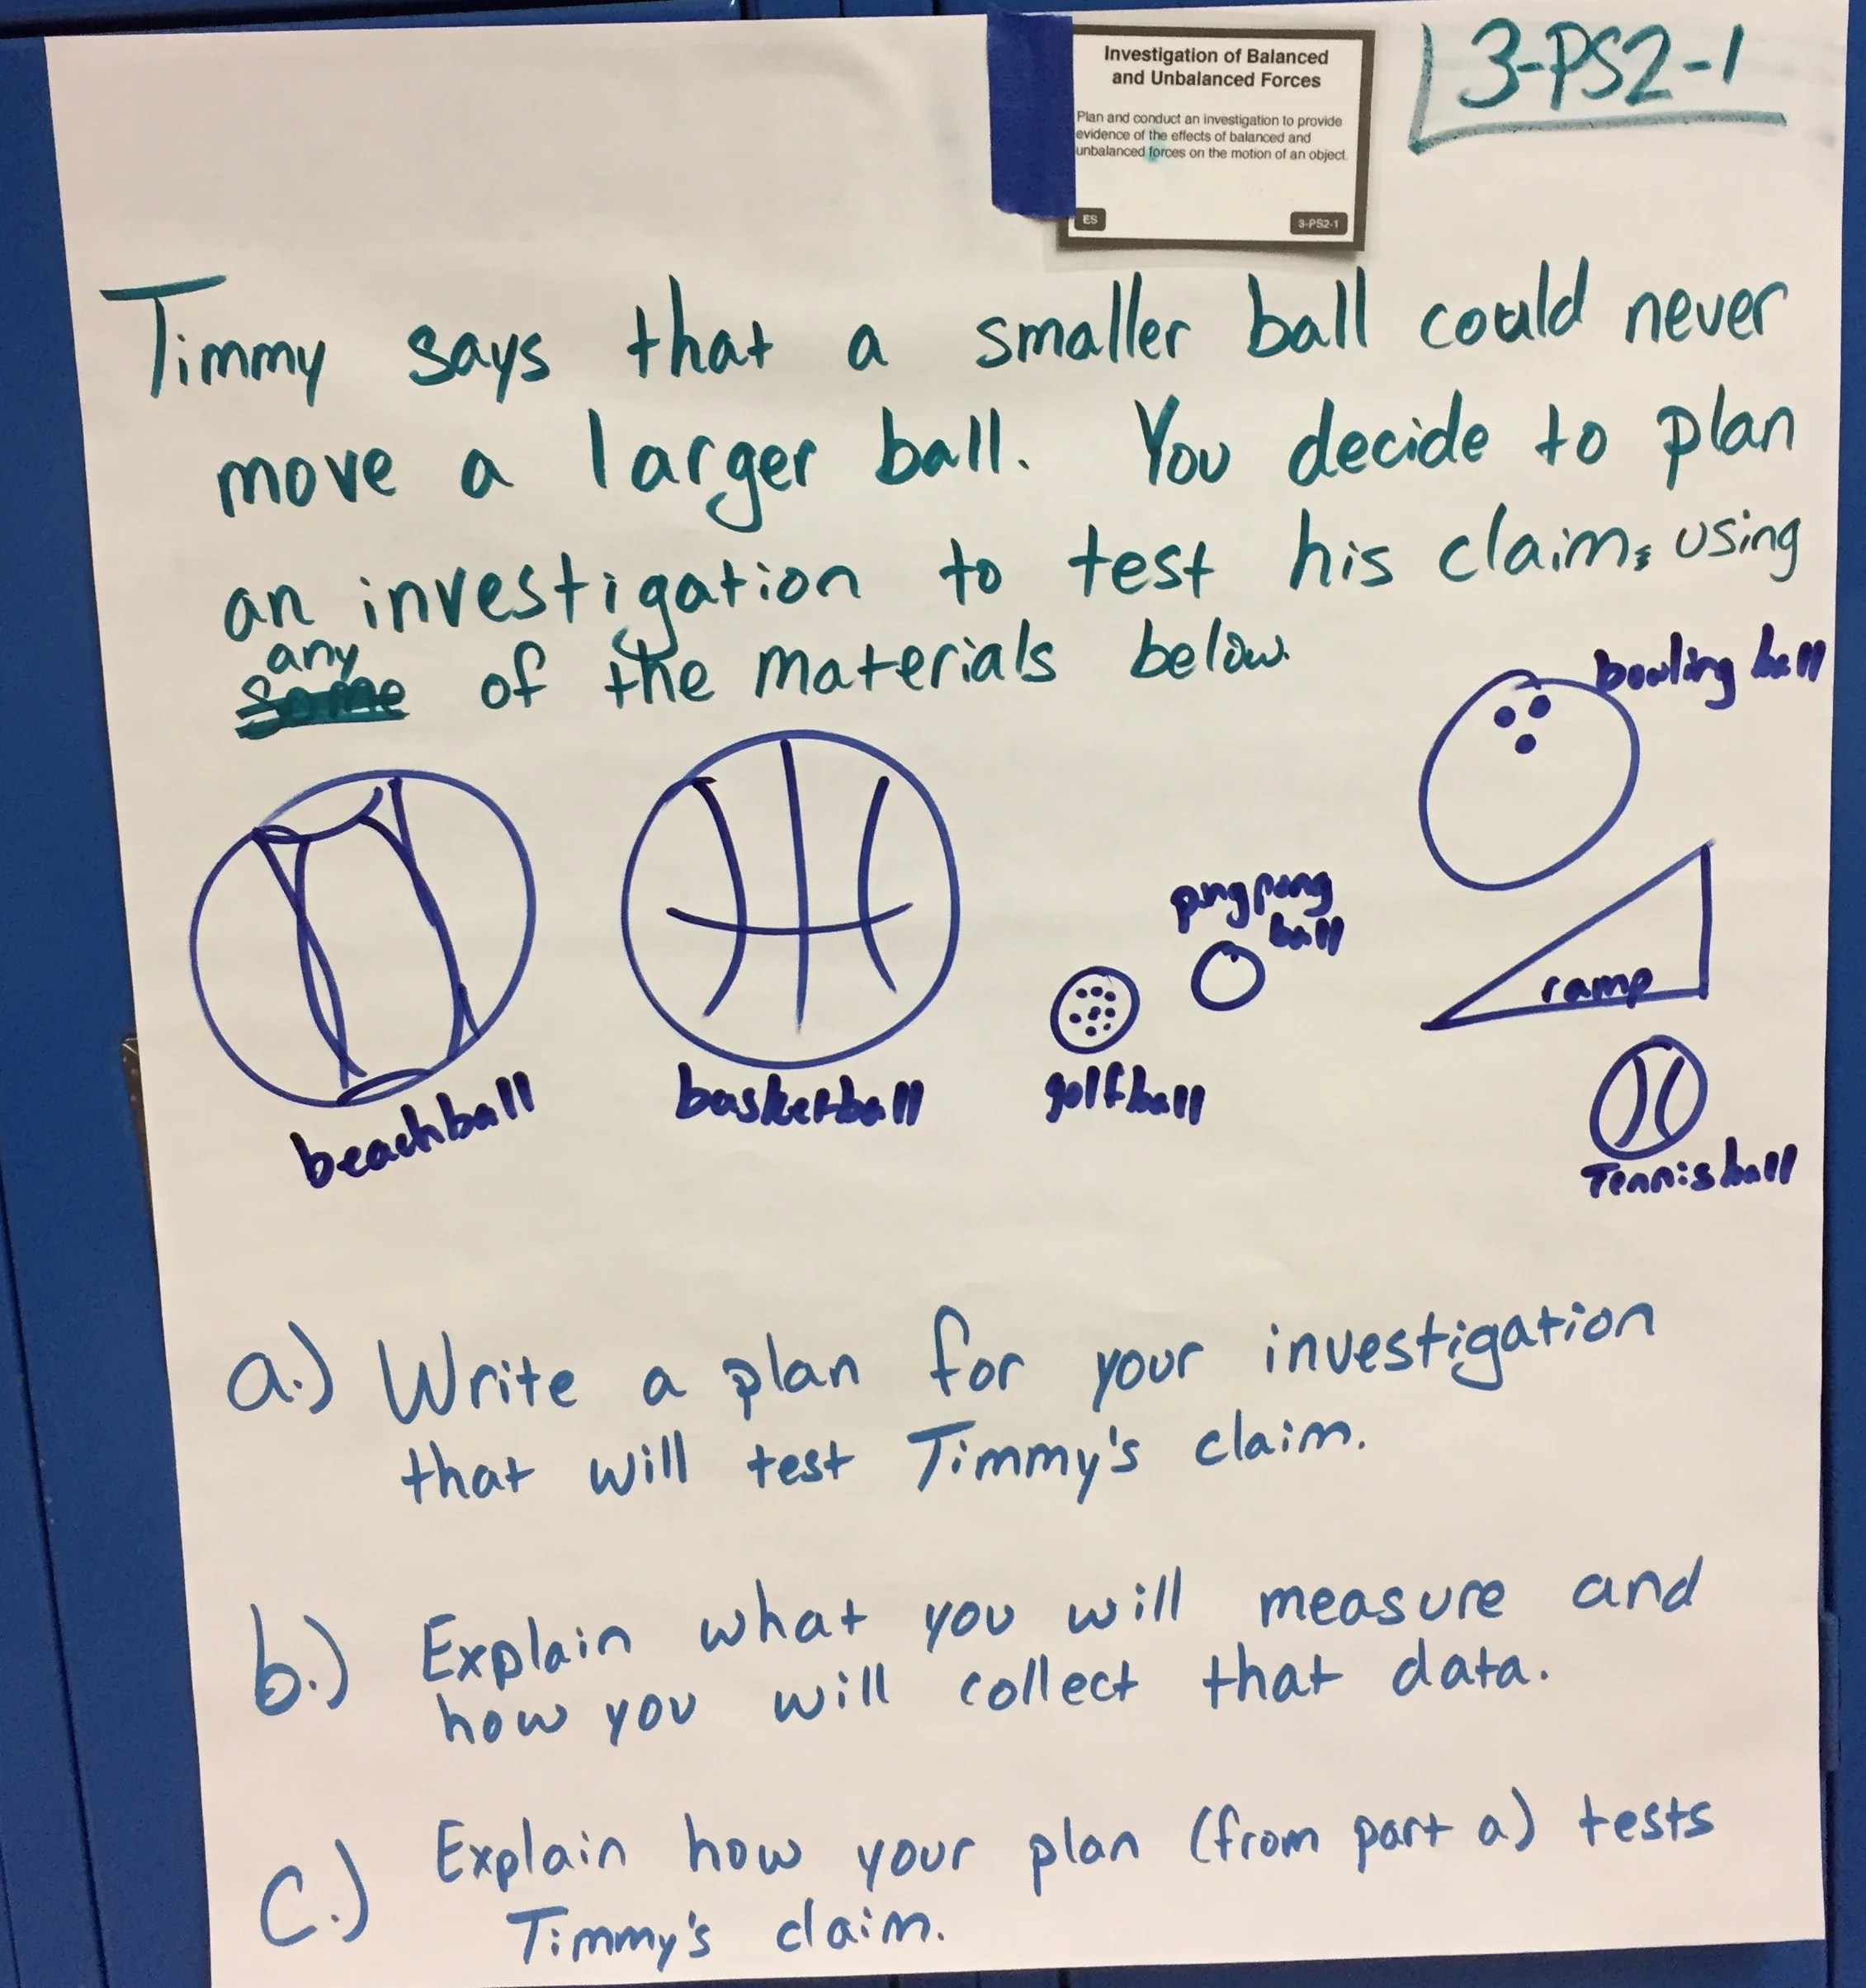 Investigation of Balanced
and Unbalanced Forces
Plan and conduct an investigation to provide
evidence of the effects of balanced and
unbalanced forces on the motion of an object.
ES
3-PS2-1
3-PS2-1
Timmy says that a smaller ball could never
move a larger ball. You decide to plan
an investigation to test his claim, using
any
some of the materials below.
bowling ball
beachball
basketball
golfball
pingpong
ball
ramp
Tennisball
a.) Write a plan for your investigation
that will test Timmy's claim.
b.) Explain what you will measure and
how you will collect that data.
c.) Explain how your plan (from part a) tests
Timmy's claim.